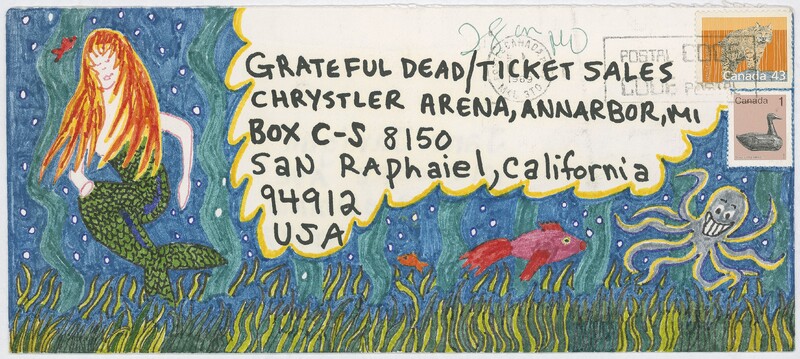 GRATEFUL DEAD/TICKET SALES
CHRYSTLER ARENA, ANNARBOR, MI
BOX C-S 8150
SAN RAPhaiel, California
94912
USA
CANADA
1989
POSTAL CODE
CODE POSTAL
Canada 43
Canada 1